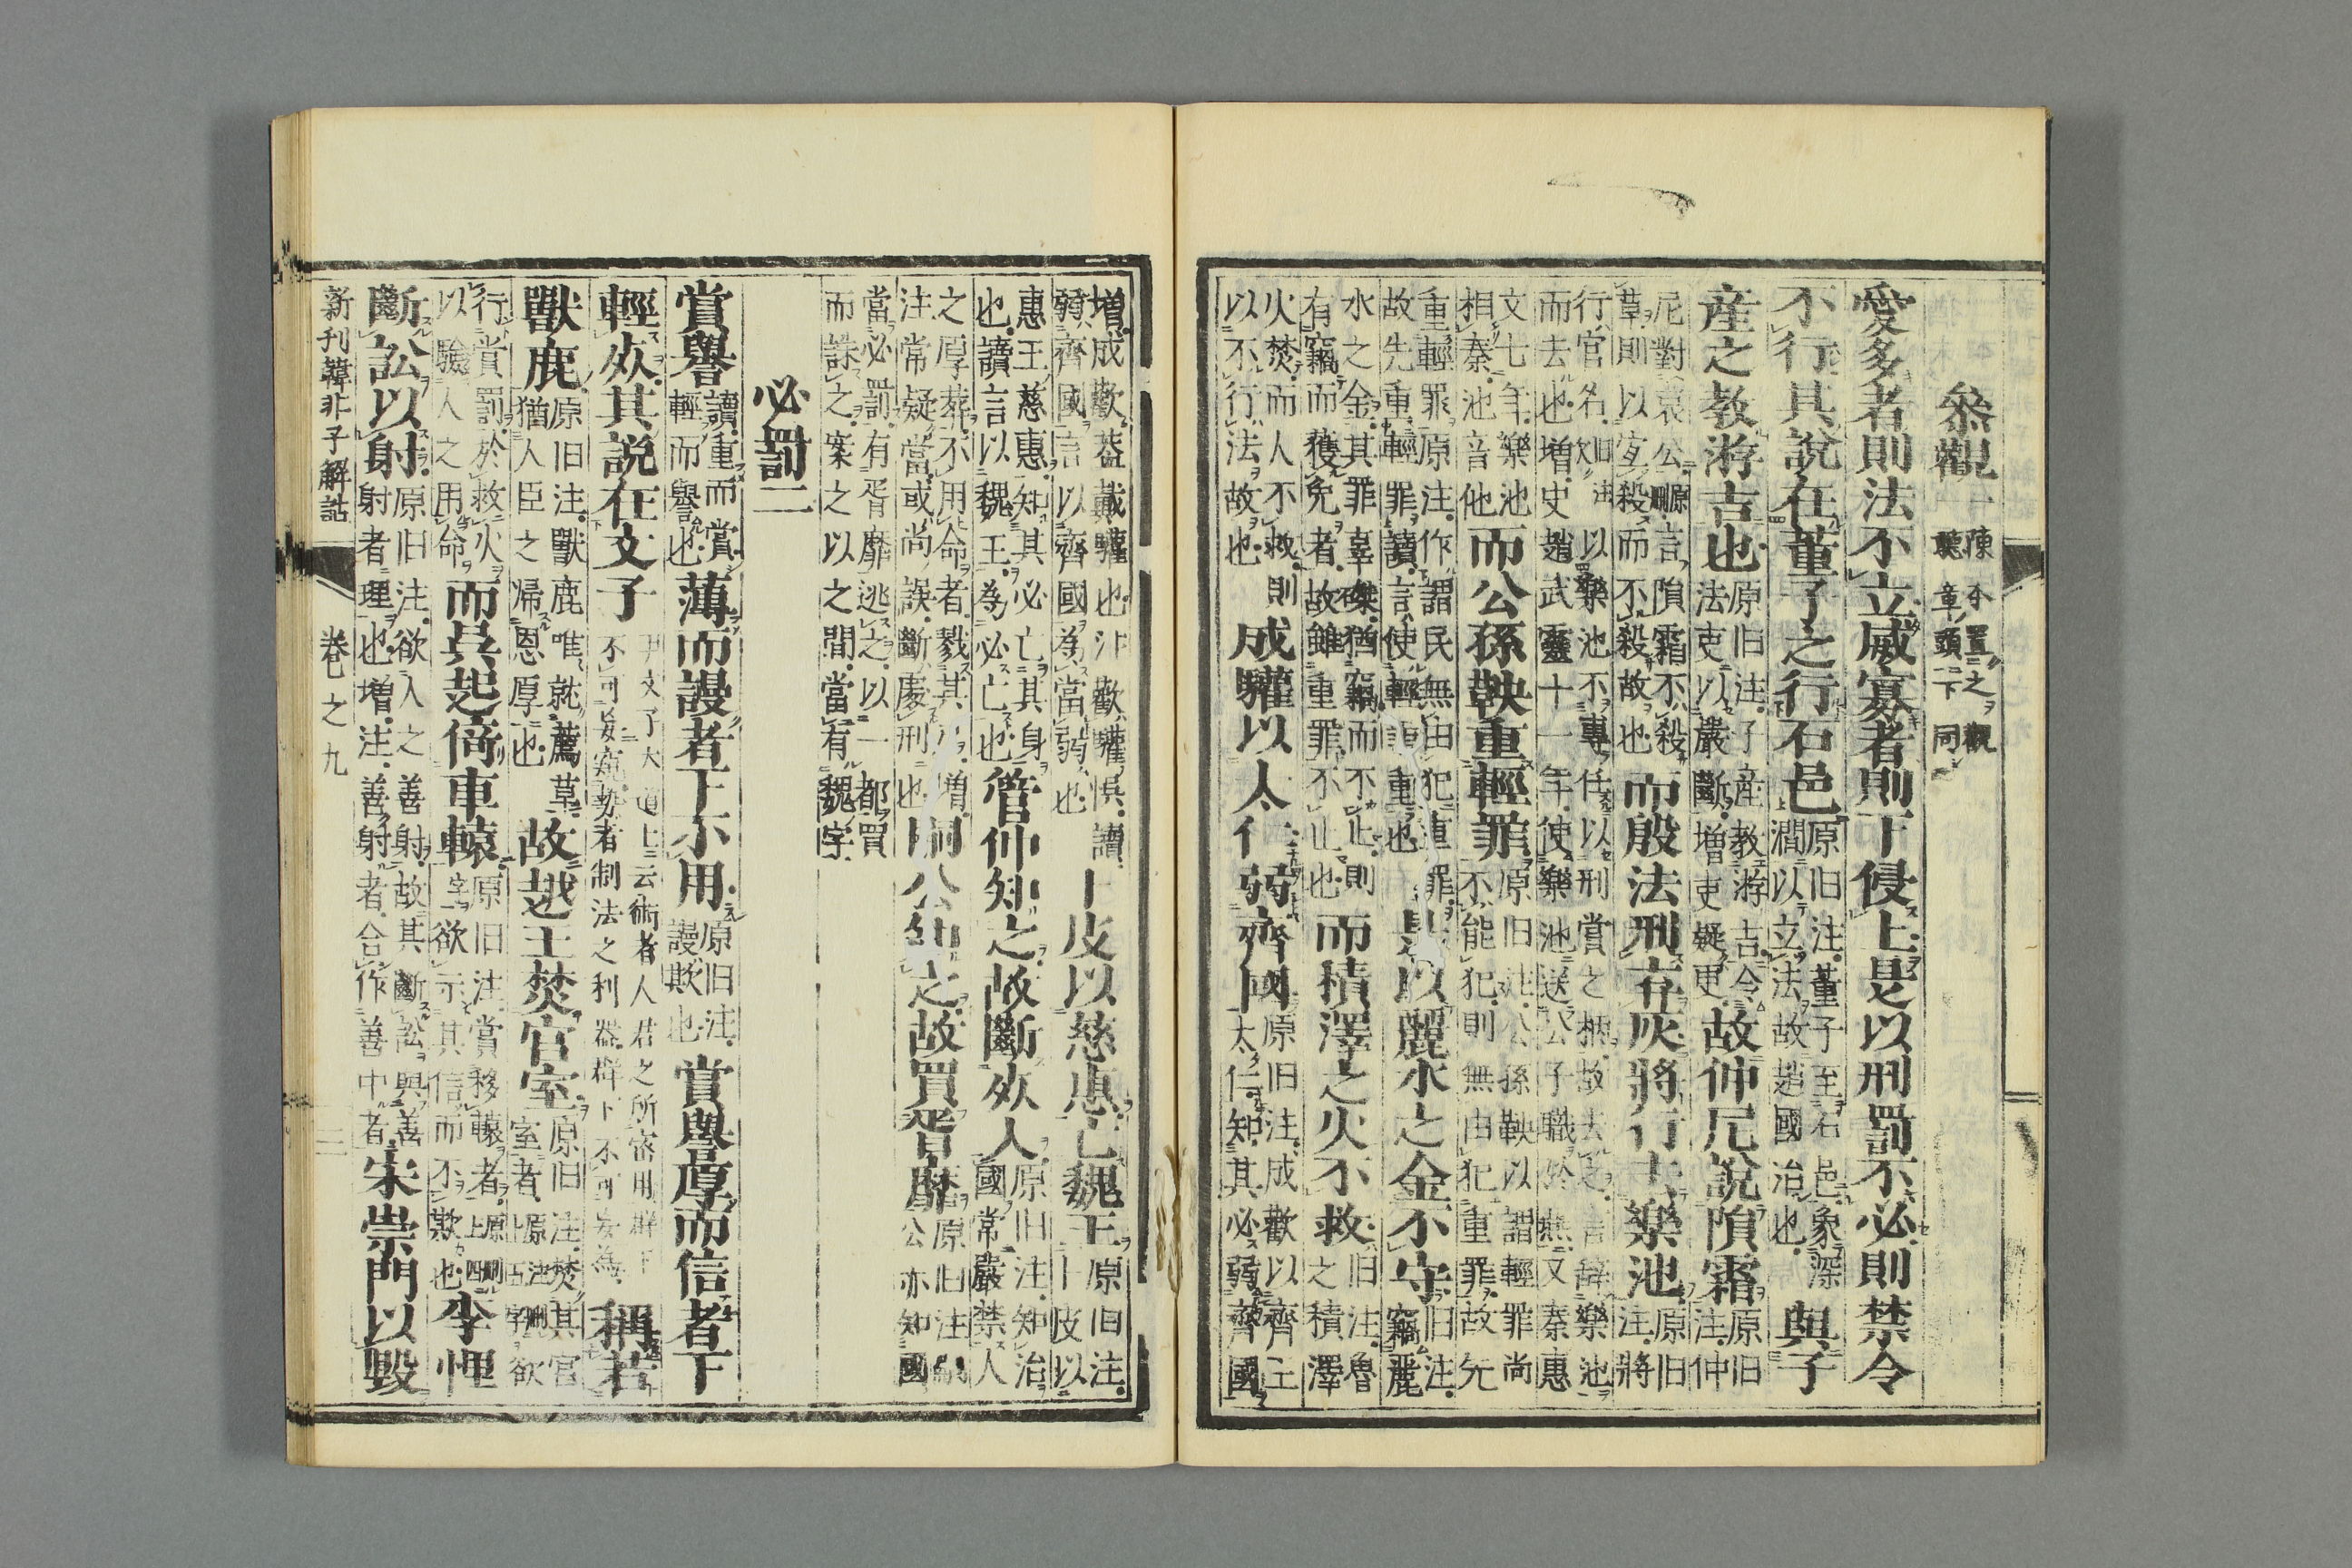 參觀一 陳奇置之觀
聽章頭下同
愛多者則法不立威寡者則下侵上是以刑罰不必則禁令
不行其說在董子之行石邑 原旧注董子至石邑象深
澗以立法故趙國治也 與子
産之教游吉也 原旧注子産教游吉令
法吏以嚴斷増吏疑更 故仲尼說隕霜 原旧
注仲
尼對哀公 原刪 言隕霜不殺
草則以宐殺而不殺故也 而殷法刑弃灰將行去樂池 原旧
注將
行官名 以樂池不專任以刑賞之柄故去之 樂池
而去也増史趙武靈十一年使樂池送公子職於燕又秦惠
文七年樂池
相秦池音他 而公孫鞅重輕罪 原旧注公孫鞅以謂輕罪尚
不能犯則無由犯重罪故先
重輕罪原注作謂民無由犯重罪
故先重輕罪讀言使輕重也 是以麗水之金不守 旧注
竊麗
水之金其罪辜磔猶竊而不止則
有竊而獲免者故雖重罪不止也 而積澤之火不救 旧注魯
之積澤
火焚而人不救則
以不行法故也 成驩以太仁弱齊國 原旧注成歡以齊王
太仁知其必弱齊國
増成歡蓋戴驩也 歡驩悞讀
弱齊國言以齊國為當弱也 卜皮以慈惠亡魏王 原旧注
卜皮以
惠王慈惠知其必亡其身
也讀言以魏王為必亡也 管仲知之故斷死人 原旧注知治
國常嚴禁人
之厚葬不用命者戮其 増
注常疑當或尚誤斷處刑也 嗣公知之故買胥靡 原旧注嗣
公亦知國
當必罰有胥靡逃之以一都買
而誅之案之以之間當有魏字
必罰二
賞譽 讀重而賞
輕而譽也 薄而謾者下不用 原旧注
謾欺也 賞譽厚而信者下
輕死其說在文子 尹文子大道上云術者人君之所密用群下
不可妄窺勢者制法之利器群下不可妄為 稱若
獸鹿 原旧注獸鹿唯就薦草
猶人臣之帰恩厚也 故越王焚官室 原旧注焚其官
室者 欲
行賞罰於救火
以驗人之用命 而吳起倚車轅 原旧注賞移轅者
欲示其信而不欺也 李悝
斷訟以射 原旧注欲人之善射故其斷訟與善
射者理也増注善射者合作善中者 宋崇門以毀
新刊韓非子解詁 卷之九 三